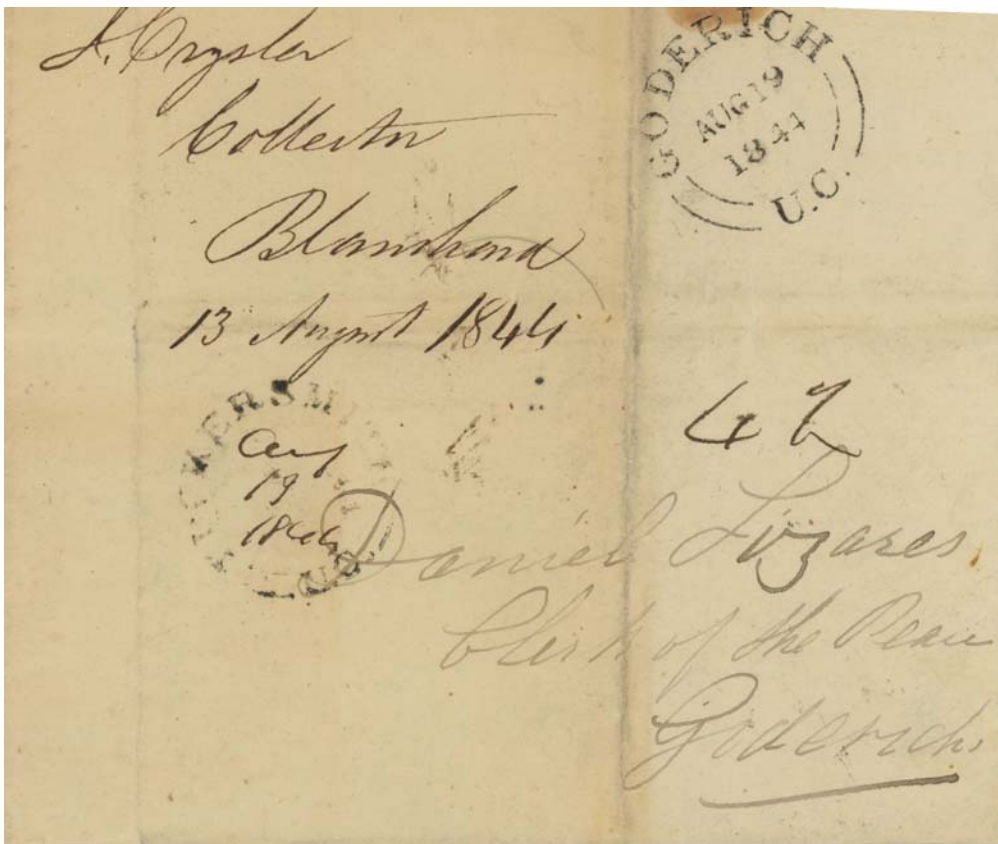 J. Crysler
Collector
Blanshard
13 August 1844
GODERICH
AUG 19
1844
U.C.
Aug
19
1844
U.C.
Daniel Lizares
Clerk of the Peace
Goderich